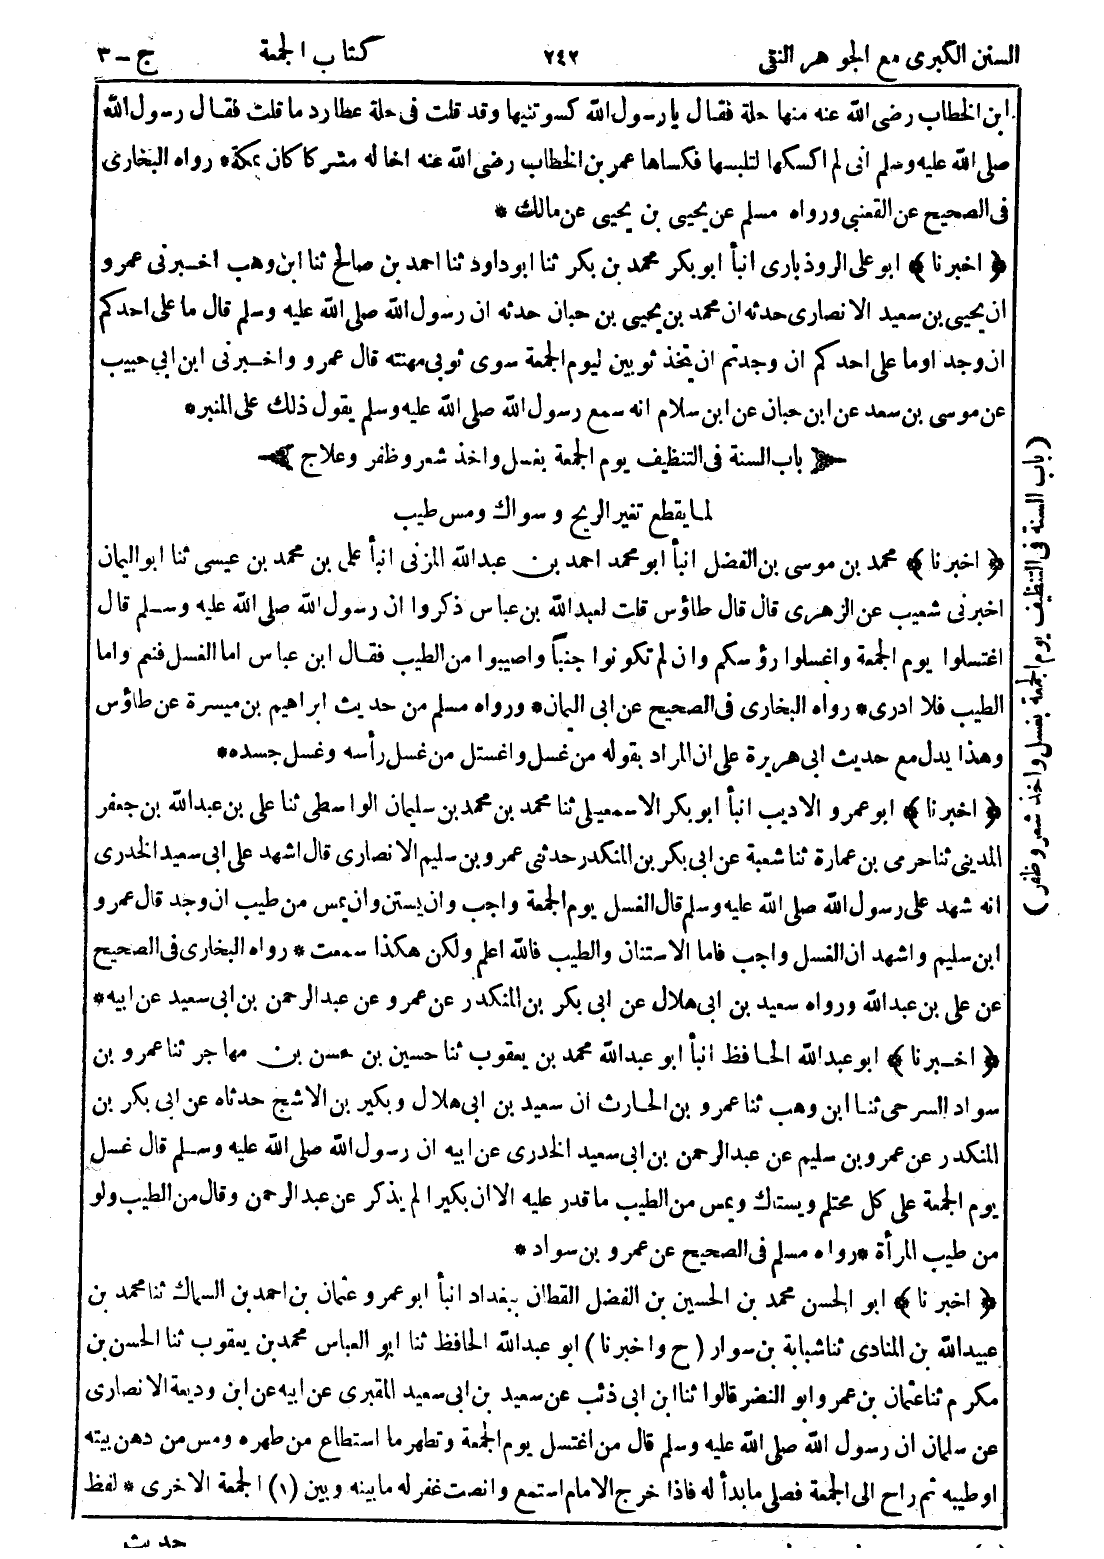 السنن الكبرى مع الجوهر النقى ٢٤٢ كتاب الجمعة ج – ٣
ابن الخطاب رضى الله عنه منها حلة فقال يا رسول الله كسوتنيها وقد قلت فى حلة عطارد ما قلت فقال رسول الله
صلى الله عليه وسلم انى لم اكسكها لتلبسها فكساها عمر بن الخطاب رضى الله عنه اخا له مشركا كان بمكة * رواه البخارى
فى الصحيح عن القعنبى ورواه مسلم عن يحيى بن يحيى عن مالك *
﴿ اخبرنا ﴾ ابو على الروذبارى انبأ ابو بكر محمد بن بكر ثنا ابو داود ثنا احمد بن صالح ثنا ابن وهب اخبرنى عمرو
ان يحيى بن سعيد الانصارى حدثه ان محمد بن يحيى بن حبان حدثه ان رسول الله صلى الله عليه وسلم قال ما على احدكم
ان وجد اوما على احدكم ان وجدتم ان يتخذ ثوبين ليوم الجمعة سوى ثوبى مهنته قال عمرو واخبرنى ابن ابى حبيب
عن موسى بن سعد عن ابن حبان عن ابن سلام انه سمع رسول الله صلى الله عليه وسلم يقول ذلك على المنبر *
باب السنة فى التنظيف يوم الجمعة بغسل واخذ شعر وظفر وعلاج
لما يقطع تغير الريح وسواك ومس طيب
﴿ اخبرنا ﴾ محمد بن موسى بن الفضل انبأ ابو محمد احمد بن عبدالله المزنى انبأ على بن محمد بن عيسى ثنا ابو اليمان
اخبرنى شعيب عن الزهرى قال قال طاؤس قلت لعبدالله بن عباس ذكروا ان رسول الله صلى الله عليه وسلم قال
اغتسلوا يوم الجمعة واغسلوا رؤسكم وان لم تكونوا جنباً واصيبوا من الطيب فقال ابن عباس اما الغسل فنعم واما
الطيب فلا ادرى * رواه البخارى فى الصحيح عن ابى اليمان * ورواه مسلم من حديث ابراهيم بن ميسرة عن طاؤس
وهذا يدل مع حديث ابى هريرة على ان المراد بقوله من غسل واغتسل من غسل رأسه وغسل جسده *
﴿ اخبرنا ﴾ ابو عمرو الاديب انبأ ابو بكر الاسمعيلى ثنا محمد بن محمد بن سليمان الواسطى ثنا على بن عبدالله بن جعفر
المدينى ثنا حرمى بن عمارة ثنا شعبة عن ابى بكر بن المنكدر حدثنى عمرو بن سليم الانصارى قال اشهد على ابى سعيد الخدرى
انه شهد على رسول الله صلى الله عليه وسلم قال الغسل يوم الجمعة واجب وان يستن وان يمس من طيب ان وجد قال عمرو
ابن سليم واشهد ان الغسل واجب فاما الاستنان والطيب فالله اعلم ولكن هكذا سمعت * رواه البخارى فى الصحيح
عن على بن عبدالله ورواه سعيد بن ابى هلال عن ابى بكر بن المنكدر عن عمرو عن عبدالرحمن بن ابى سعيد عن ابيه *
﴿ اخبرنا ﴾ ابو عبدالله الحافظ انبأ ابو عبدالله محمد بن يعقوب ثنا حسين بن حسن بن مهاجر ثنا عمرو بن
سواد السرحى ثنا ابن وهب ثنا عمرو بن الحارث ان سعيد بن ابى هلال وبكير بن الاشج حدثاه عن ابى بكر بن
المنكدر عن عمرو بن سليم عن عبدالرحمن بن ابى سعيد الخدرى عن ابيه ان رسول الله صلى الله عليه وسلم قال غسل
يوم الجمعة على كل محتلم ويستاك ويمس من الطيب ما قدر عليه الا ان بكيرا لم يذكر عن عبدالرحمن وقال من الطيب ولو
من طيب المرأة * رواه مسلم فى الصحيح عن عمرو بن سواد *
﴿ اخبرنا ﴾ ابو الحسن محمد بن الحسين بن الفضل القطان ببغداد انبأ ابو عمرو عثمان بن احمد بن السماك ثنا محمد بن
عبيدالله بن المنادى ثنا شبابة بن سوار ( ح واخبرنا ) ابو عبدالله الحافظ ثنا ابو العباس محمد بن يعقوب ثنا الحسن بن
مكرم ثنا عثمان بن عمر وابو النضر قالوا ثنا ابن ابى ذئب عن سعيد بن ابى سعيد المقبرى عن ابيه عن ابن وديعة الانصارى
عن سلمان ان رسول الله صلى الله عليه وسلم قال من اغتسل يوم الجمعة وتطهر ما استطاع من طهره ومس من دهن بيته
او طيبه ثم راح الى الجمعة فصلى ما بدأ له فاذا خرج الامام استمع وانصت غفر له ما بينه وبين (١) الجمعة الاخرى * لفظ
حديث
( باب السنة فى التنظيف يوم الجمعة بغسل واخذ شعر وظفر )